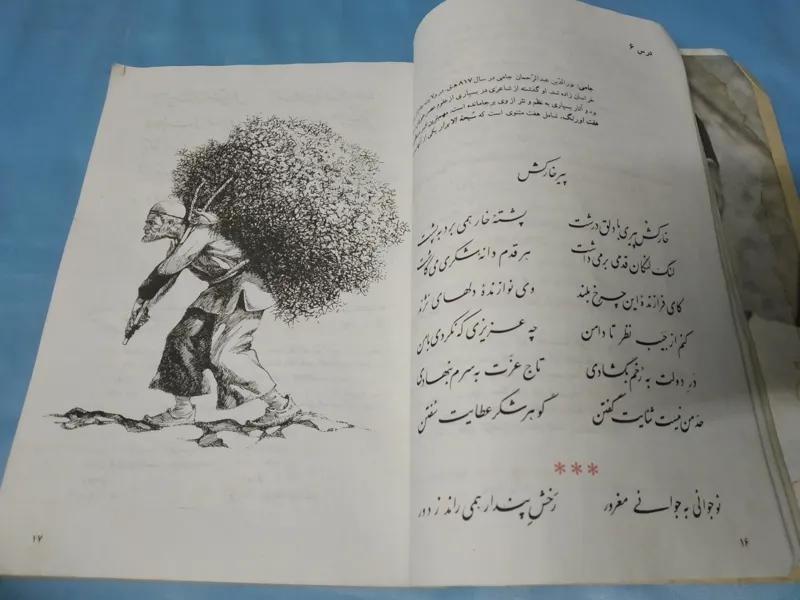 درس ۶
جامی: نورالدّین عبدالرّحمان جامی در سال ۸۱۷ ه‍.ق. در ولایت
خراسان زاده شد. او گذشته از شاعری در بسیاری از علوم
بود و آثار بسیاری به نظم و نثر از وی برجامانده است. مهم‌ترین
هفت اورنگ، شامل هفت مثنوی است که سُبحة الابرار یکی از
پیر خارکش
خارکش پیری با دلق درشت پشتهٔ خار همی برد به پشت
لنگ لنگان قدمی برمی داشت هر قدم دانهٔ شکری می کاشت
کای فرازندهٔ این چرخ بلند وی نوازندهٔ دلهای نژند
کنم از جَیب نظر تا دامن چه عزیزی که نکردی با من
درِ دولت به رُخم بگشادی تاج عزّت به سرم بنهادی
حدّ من نیست ثنایت گفتن گوهر شکر عطایت سُفتن
***
نوجوانی به جوانی مغرور رَخشِ پندار همی راند ز دور
۱۶
۱۷